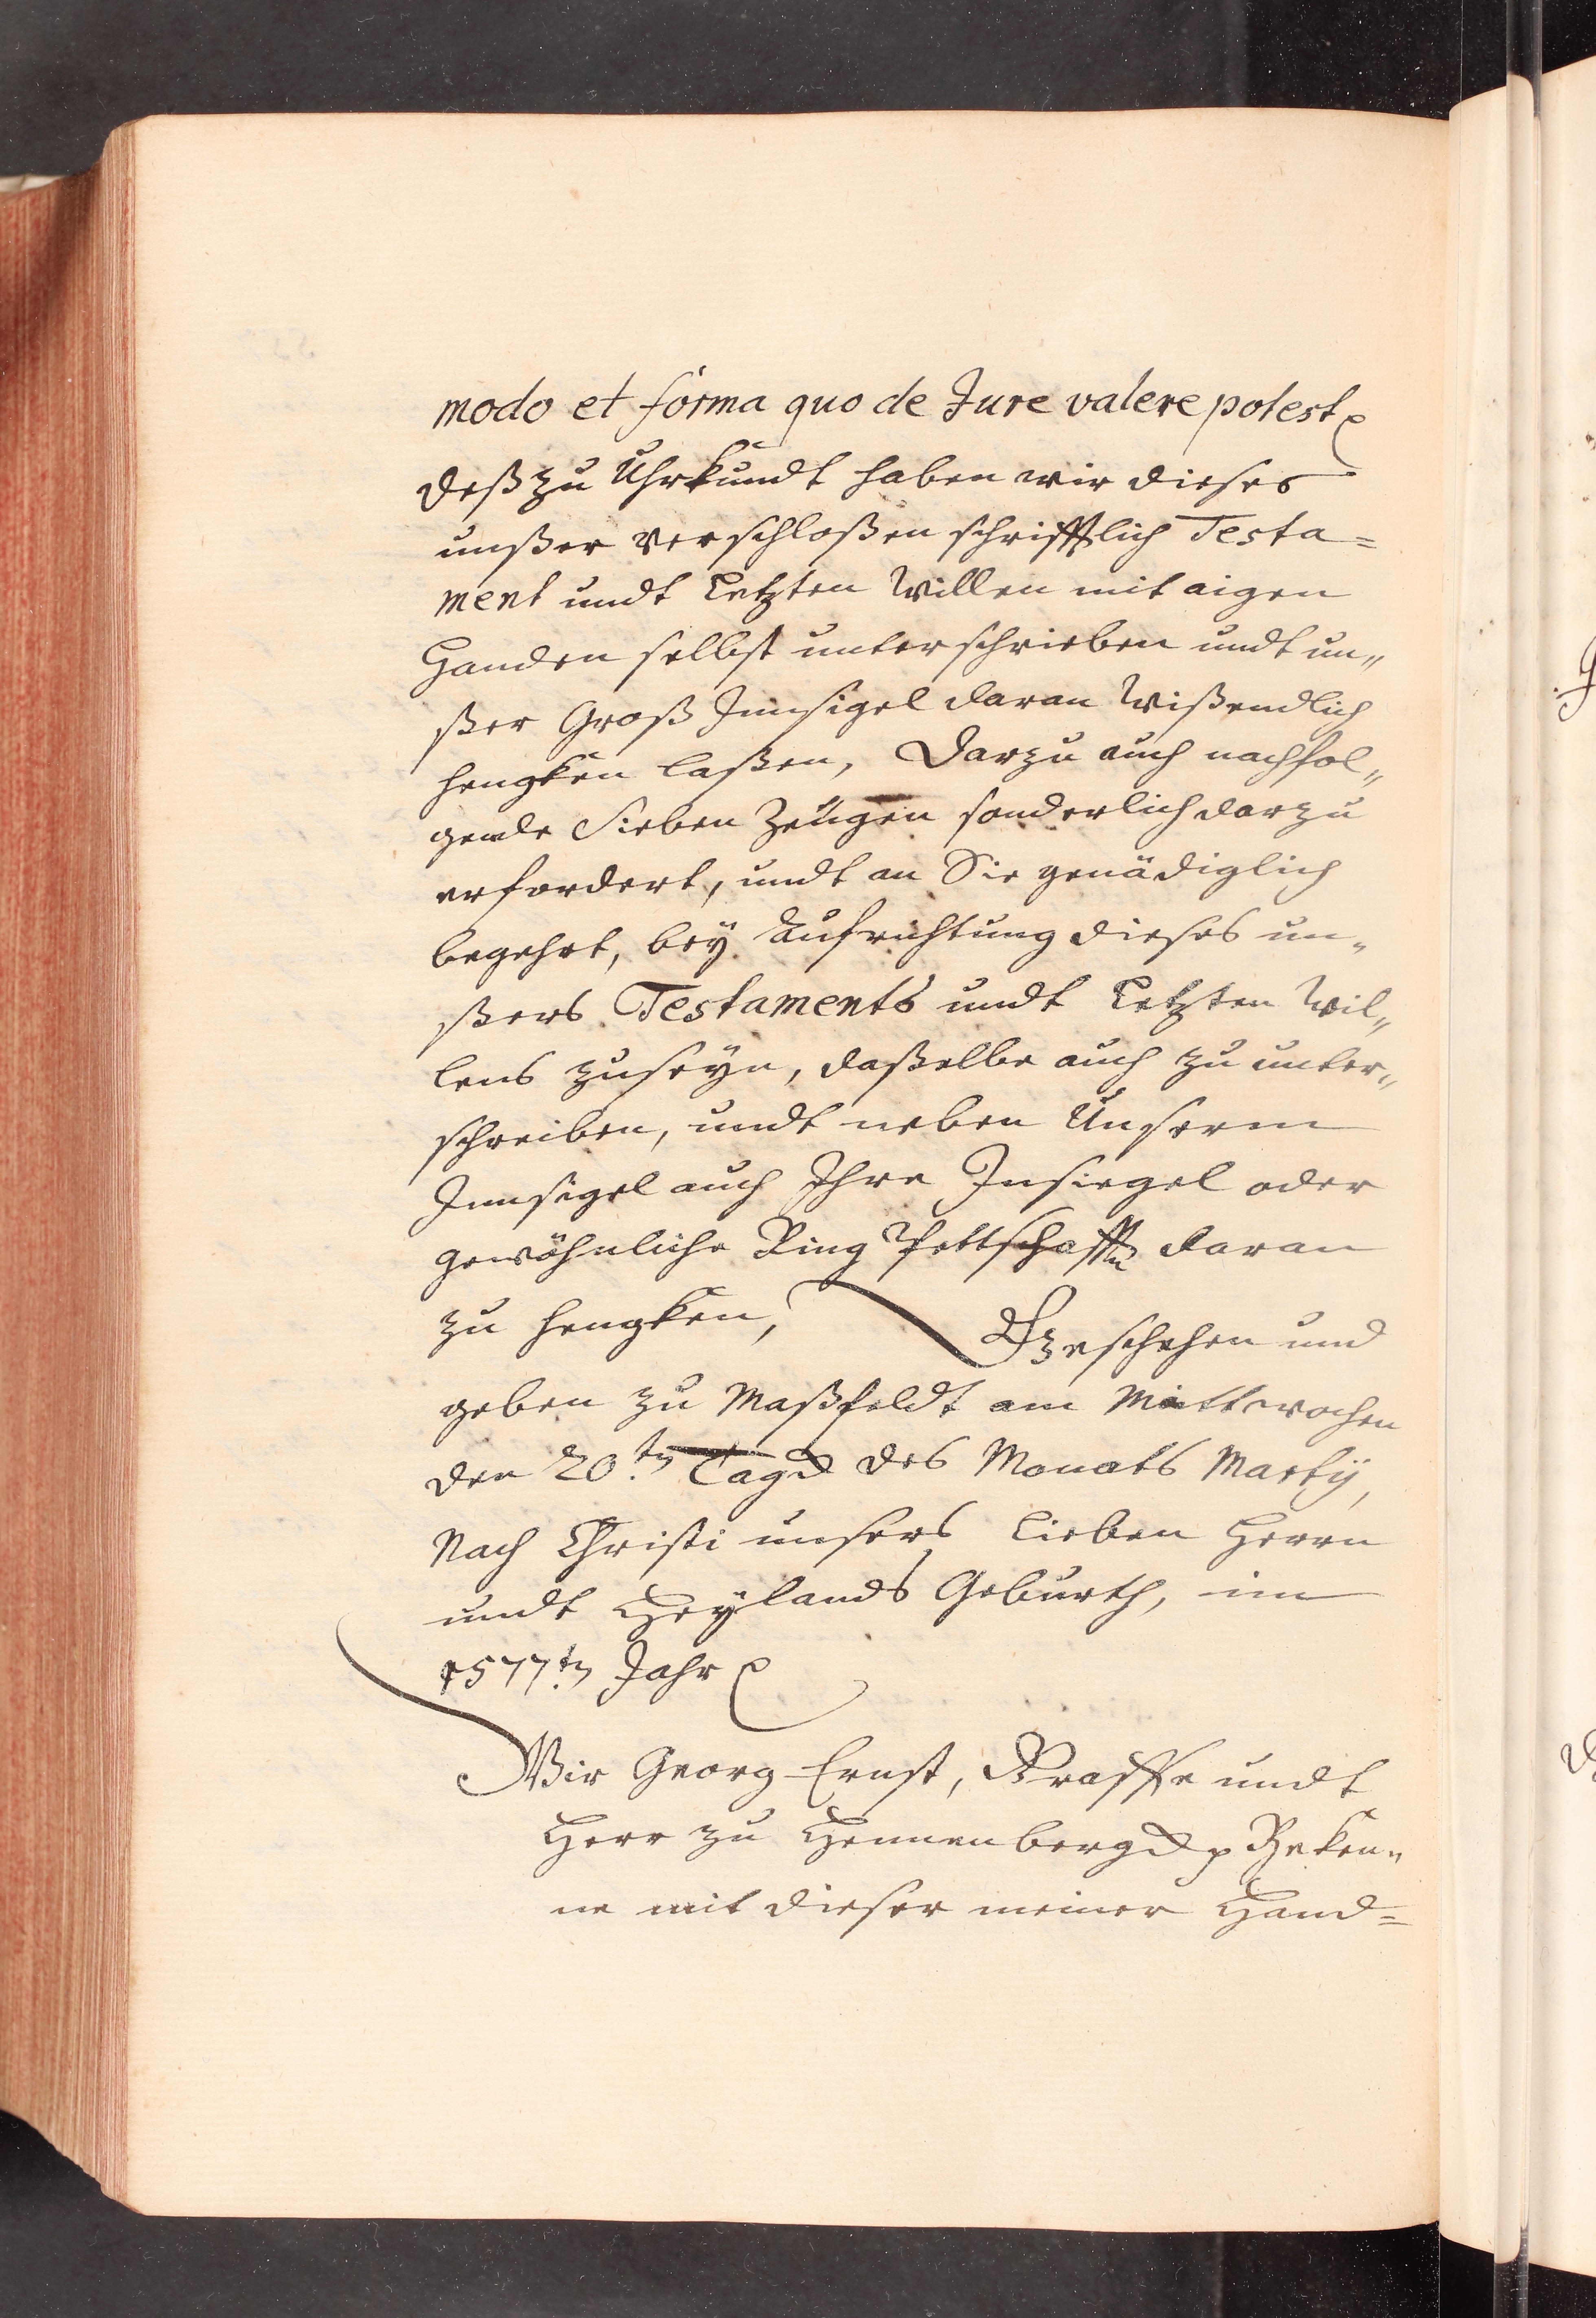 modo et forma quo de Jure valere potest
deß zu Uhrkundt haben wir dieses
unßer verschloßen schrifftlich Testa=
ment undt Letzten Willen mit aigen
Handen selbst unterschrieben undt un„
ßer Groß Innsigel daran Wißendlich
hengken laßen, Darzu auch nachfol„
gende Sieben Zeügen sonderlich darzu
erfordert, undt an Sie genädiglich
begehrt, bey Aufrichtung dieses un„
ßers Testaments undt Letzten Wil„
lens zuseyn, daßelbe auch zu unter„
schreiben, undt neben Unserm
Innsigel auch Ihre Insiegel oder
gewöhnliche Ring Pettschafften daran
zu hengken, Geschehen und
geben zu Maßfeldt am Mittwochen
den 20.ten Tag des Monats Martÿ,
Nach Christi unsers lieben Herrn
undt Heylands Geburth, im
1577.ten Jahr
Wir Georg Ernst, Graffe undt
Herr zu Hennenberg Beken„
ne mit dieser meiner Hand=